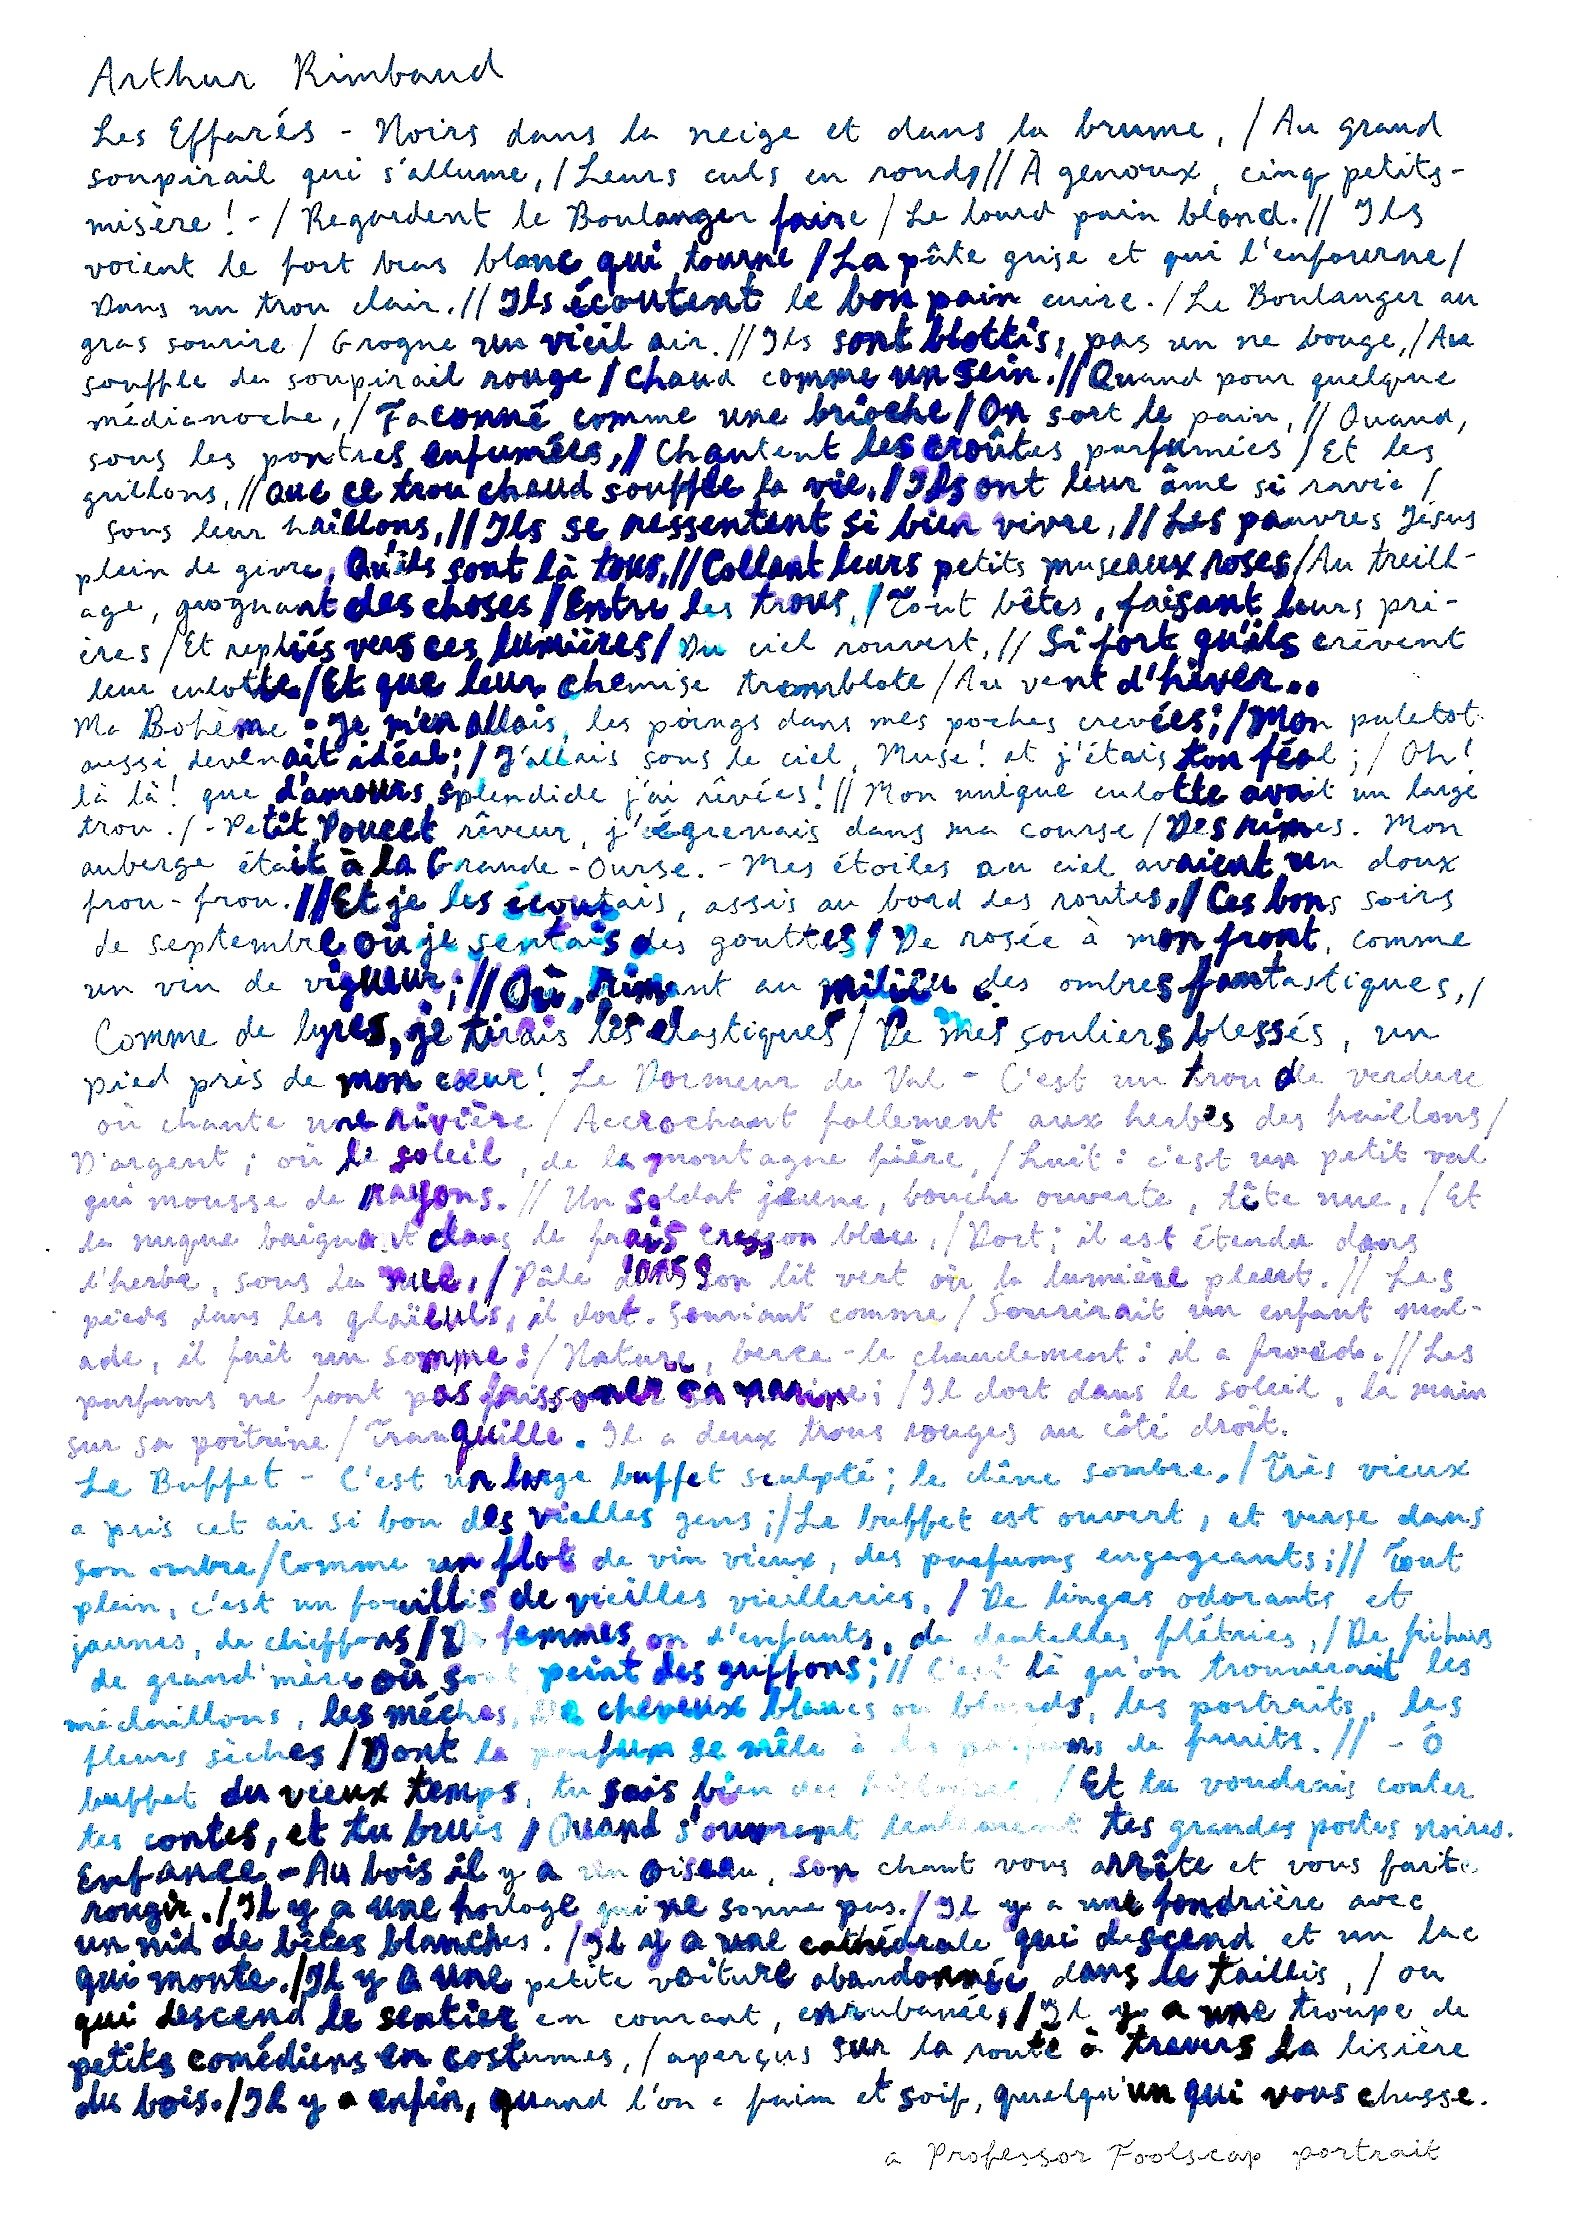 Arthur Rimbaud
Les Effarés - Noirs dans la neige et dans la brume, / Au grand
soupirail qui s'allume, / Leurs culs en rond, // À genoux, cinq petits-
misère! - / Regardent le Boulanger faire / Le lourd pain blond. // Ils
voient le fort bras blanc qui tourne / La pâte grise et qui l'enfourne /
Dans un trou clair. // Ils écoutent le bon pain cuire. / Le Boulanger au
gras sourire / Grogne un vieil air. // Ils sont blottis, pas un ne bouge, / Au
souffle du soupirail rouge / Chaud comme un sein. // Quand pour quelque
médianoche, / Façonné comme une brioche / On sort le pain, // Quand,
sous les poutres enfumées, / Chantent les croûtes parfumées / Et les
grillons, // Que ce trou chaud souffle la vie, / Ils ont leur âme si ravie /
Sous leur haillons, // Ils se ressentent si bien vivre, // Les pauvres Jésus
plein de givre, Qu'ils sont là tous, // Collant leurs petits museaux roses / Au treill-
age, grognant des choses / Entre les trous, / Tout bêtes, faisant leurs pri-
ères / Et repliés vers ces lumières / Du ciel rouvert, // Si fort qu'ils crèvent
leur culotte / Et que leur chemise tremblote / Au vent d'hiver..
Ma Bohème - Je m'en allais, les poings dans mes poches crevées; / Mon paletot
aussi devenait idéal; / J'allais sous le ciel, Muse! et j'étais ton féal; / Oh!
là là! que d'amours splendide j'ai rêvées! // Mon unique culotte avait un large
trou. / - Petit Poucet rêveur, j'égrenais dans ma course / Des rimes. Mon
auberge était à la Grande-Ourse. - Mes étoiles au ciel avaient un doux
frou-frou. // Et je les écoutais, assis au bord des routes, / Ces bons soirs
de septembre où je sentais des gouttes / De rosée à mon front, comme
un vin de vigueur; // Où, rimant au milieu des ombres fantastiques, /
Comme de lyres, je tirais les élastiques / De mes souliers blessés, un
pied près de mon cœur! Le Dormeur du Val - C'est un trou de verdure
où chante une rivière / Accrochant follement aux herbes des haillons /
D'argent; où le soleil, de la montagne fière, / Luit: c'est un petit val
qui mousse de rayons. // Un soldat jeune, bouche ouverte, tête nue, / Et
la nuque baignant dans le frais cresson bleu, / Dort; il est étendu dans
l'herbe, sous la nue, / Pâle dans son lit vert où la lumière pleut. // Les
pieds dans les glaïeuls, il dort. Souriant comme / Sourirait un enfant mal-
ade, il fait un somme: / Nature, berce-le chaudement: il a froid. // Les
parfums ne font pas frissonner sa narine; / Il dort dans le soleil, la main
sur sa poitrine / Tranquille. Il a deux trous rouges au côté droit.
Le Buffet - C'est un large buffet sculpté; le chêne sombre, / Très vieux
a pris cet air si bon des vieilles gens; / Le buffet est ouvert, et verse dans
son ombre / Comme un flot de vin vieux, des parfums engageants; // Tout
plein, c'est un fouillis de vieilles vieilleries, / De linges odorants et
jaunes, de chiffons / De femmes ou d'enfants, de dentelles flétries, / De fichus
de grand'mère où sont peint des griffons; // C'est là qu'on trouverait les
médaillons, les mèches, de cheveux blancs ou blonds, les portraits, les
fleurs sèches / Dont le parfum se mêle à des parfums de fruits. // - Ô
buffet du vieux temps, tu sais bien des histoires, / Et tu voudrais conter
tes contes, et tu bruis / Quand s'ouvrent lentement tes grandes portes noires.
Enfance - Au bois il y a un oiseau, son chant vous arrête et vous faite
rougir. / Il y a une horloge qui ne sonne pas. / Il y a une fondrière avec
un nid de bêtes blanches. / Il y a une cathédrale qui descend et un lac
qui monte. / Il y a une petite voiture abandonnée dans le taillis, / ou
qui descend le sentier en courant, enrubanée, / Il y a une troupe de
petits comédiens en costumes, / aperçus sur la route à travers la lisière
du bois. / Il y a enfin, quand l'on a faim et soif, quelqu'un qui vous chasse.
a Professor Foolscap portrait